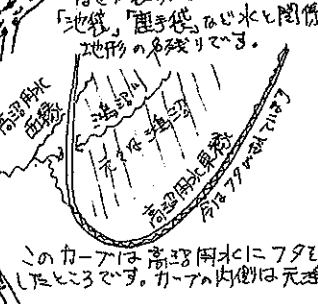 「池袋」「聖手袋」など水と関係
地形の名残りです。
高沼用水
西縁
鴻沼
元々は鴻沼
高沼用水東縁
今はフタがされています
このカーブは高沼用水にフタを
したところです。カーブの内側は元鴻